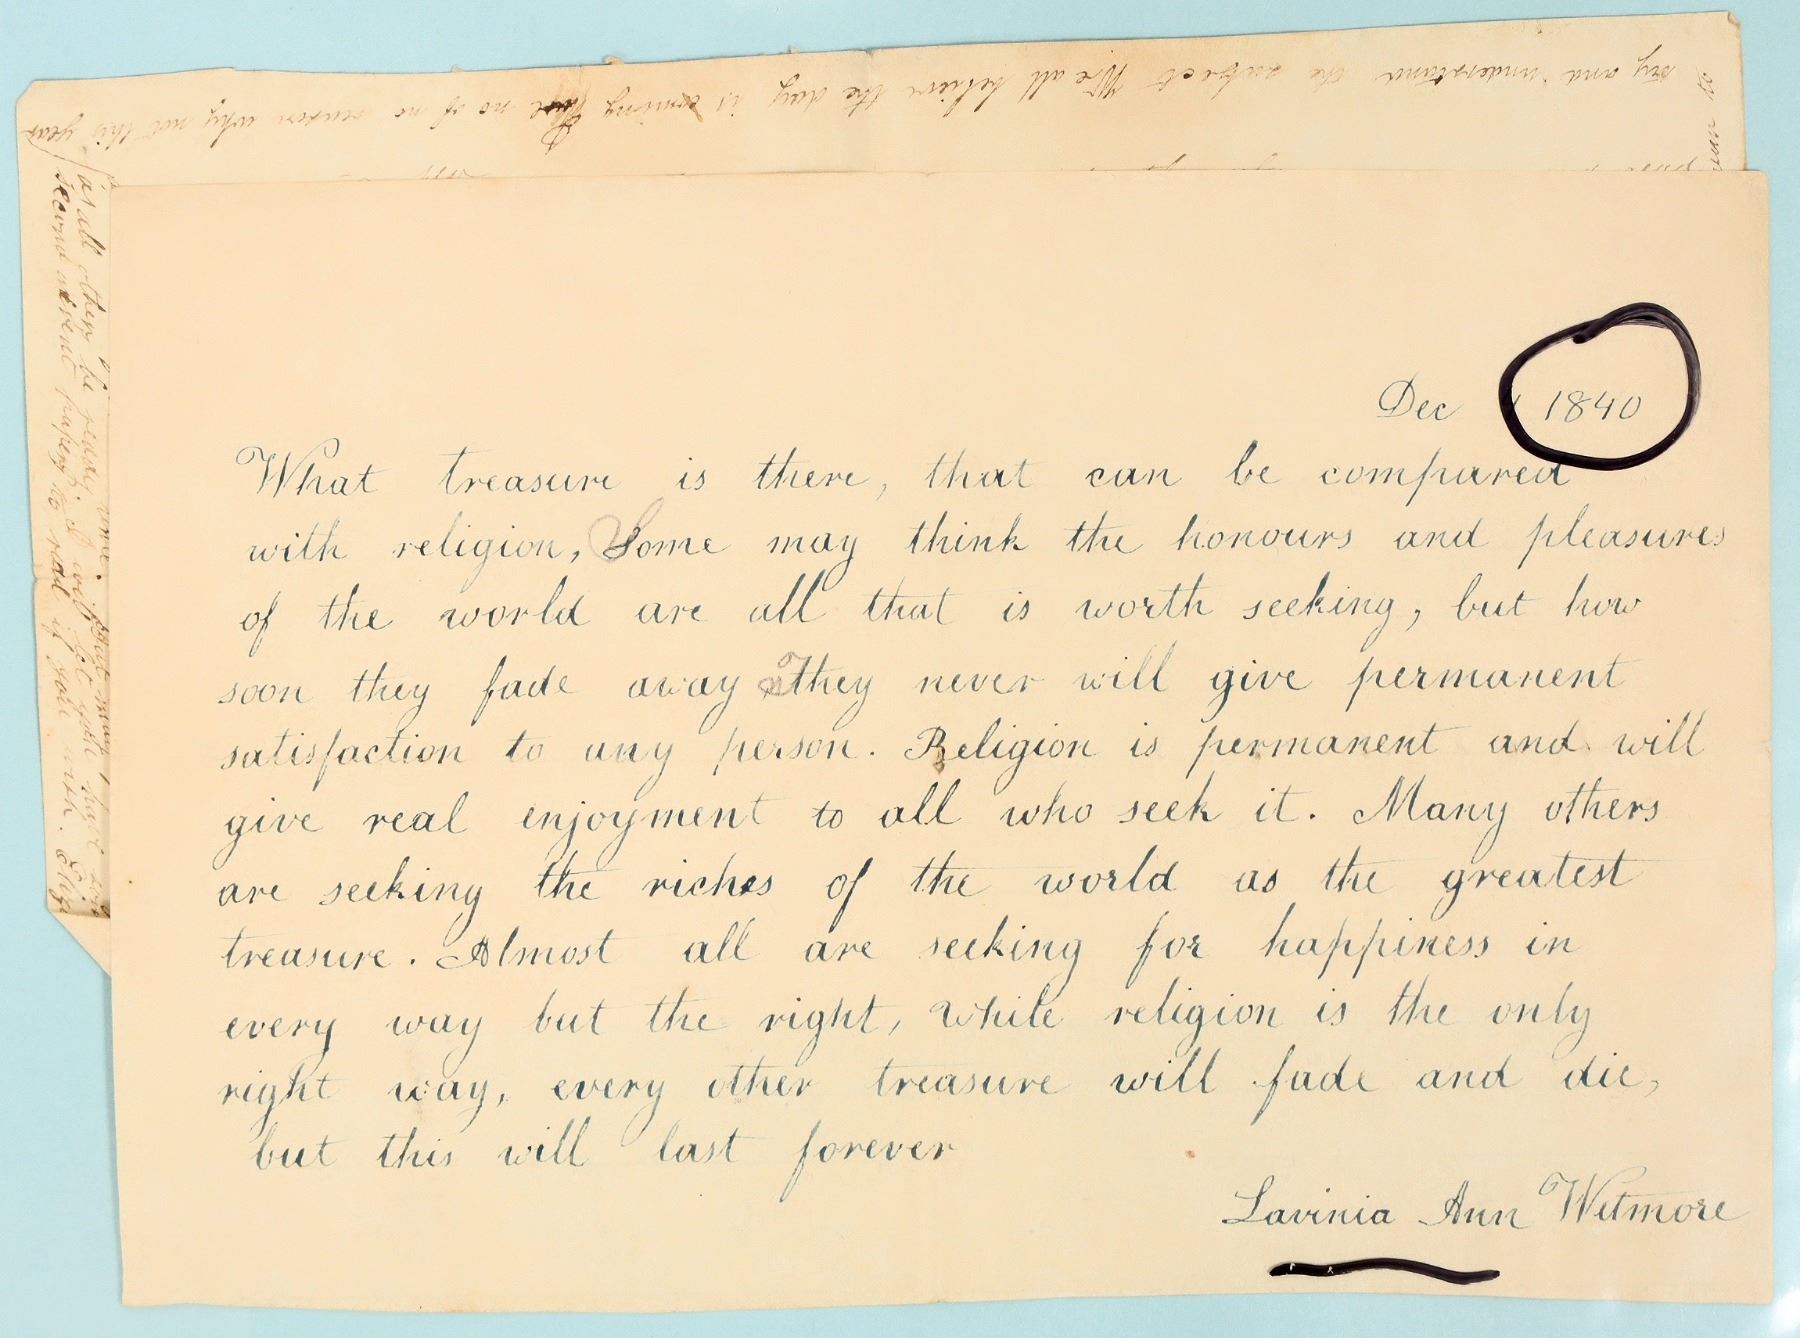 Dec 1840
What treasure is there, that can be compared
with religion, Some may think the honours and pleasures
of the world are all that is worth seeking, but how
soon they fade away They never will give permanent
satisfaction to any person. Religion is permanent and will
give real enjoyment to all who seek it. Many others
are seeking the riches of the world as the greatest
treasure. Almost all are seeking for happiness in
every way but the right, while religion is the only
right way, every other treasure will fade and die,
but this will last forever
Lavinia Ann Witmore
try and understand the subject We all believe the day is coming no of no reason why not this year
as all others be ready time. But may
second advent papers to read if you wish. Eliza